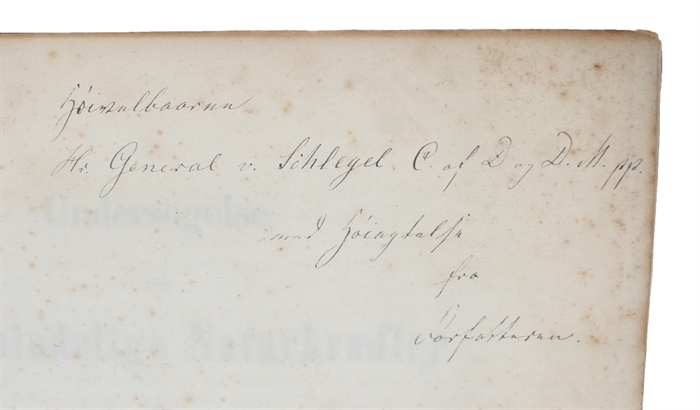 Høivelbaarne
Hr. General v. Schlegel. C. af D og D. M. pp.
med Høiagtelse
fra
Forfatteren.
Undersøgelse
Naturkræfter